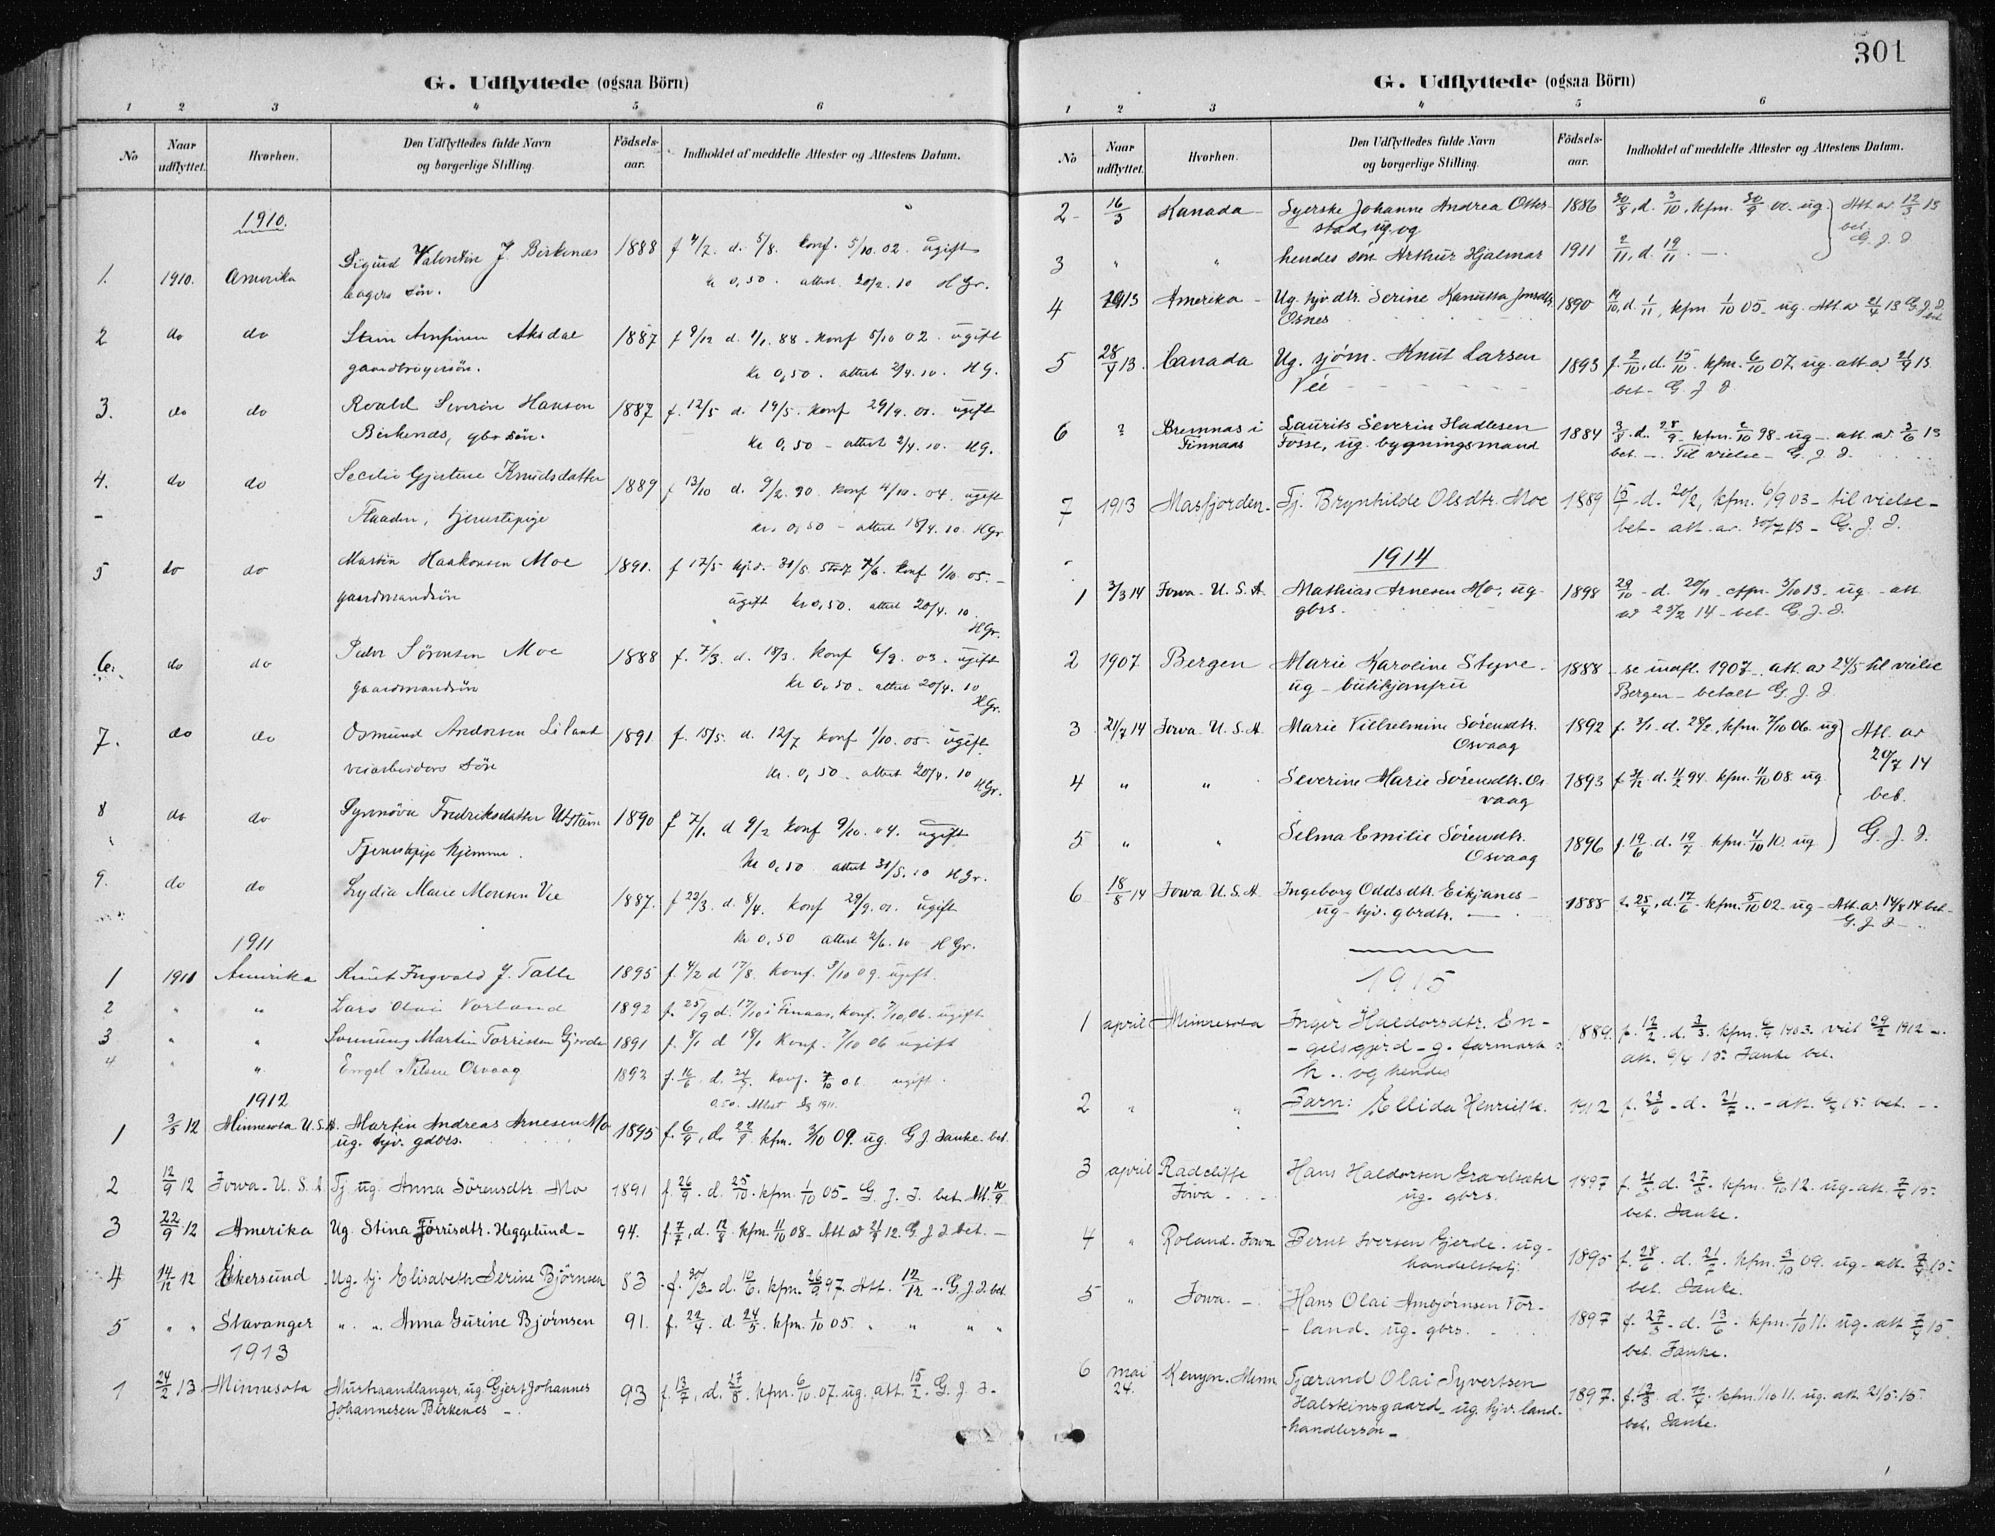 G. Udflyttede (ogsaa Börn)
1 2 3 4 5 6
No Naar udflyttet. Hvorhen. Den Udflyttedes fulde Navn og borgerlige Stilling. Födsels-aar. Indholdet af meddelte Attester og Attestens Datum.
1910.
1. 1910. Amerika Sigurd Valentin J. Birkenæs 1888 f 4/2. d. 5/8. konf. 5/10.02. ugift
bagers sön. kr 0,50. attest. 20/2.10 H Gr.
2 do do Stein Arnfinn Aksdal 1887 f 9/12 d. 1/1.88. konf 5/10 02. ugift
gaardbrugersön. kr 0,50. attest 2/4.10. H G.
3. do do Roald Severin Hansen 1887 f. 12/5 d. 19/5. konf 29/9.01. ugift
Birkenæs, gbr sön. kr 0,50 – attest 2/4.10. H G.
4. do do Secilie Gjertine Knudsdatter 1889 f 13/10 d. 9/2.90. konf 4/10.04. ugift
Flaaden, tjenestepige kr. 0,50 – attest 18/4.10. H Gr
5 do do Martin Haakonsen Moe 1891. f 12/5 hj.d. 31/5. stadf 7/6. konf 1/10 05. –
gaardmandsön ugift kr 0,50. attest 20/4.10. H Gr.
6. do do Peder Sörensen Moe 1888 f. 7/3. d. 18/3. konf 6/9.03. ugift
gaardmandsön kr 0,50. attest 20/4.10 H Gr.
7. do do Osmund Andersen Liland 1891 f. 15/5. d. 12/7 konf 1/10.05. ugift
veiarbeiders Sön kr. 0,50. attest 20/4.10 H Gr.
8 do do Synnöve Fredriksdatter 1890 f 7/1. d 9/2 konf 9/10.04. ugift
Tjenestepige hjemme. kr 0,50 attest 31/5.10 H Gr.
9. do do Lydia Marie Monsen Vee 1887. f 22/3. d. 8/4. konf 29/9.01. ugift
kr 0,50 attest 2/6.10 H Gr.
1911
1 1911 Amerika Knut Ingvald J. Talle 1895 f. 4/2 d 17/8. konf. 3/10 09. ugift.
2 " " Lars Olai Vorland 1892 f. 25/9 d. 17/10 i Finaas, konf. 7/10.06. ugift
3 " " Martin Torrisen Gjerde 1891 f. 8/1 d 18/1 konf. 7/10 06 ugift
4 " " Engel Nilsine Osvaag 1893 f. 16/6. d. 24/7 konf. 7/10 06. ugift.
0.50. Attest 1911.
1912
1 3/5 12 Minnesota U.S.A. Martin Andreas Arnesen Mo 1895 f. 6/9, d. 22/9 kfm. 3/10 09. ug. G J Janke. bet.
ug. hjv. gdbrs.
2 12/9 12 Iowa - U.S.A Tj ug. Anna Sörensdtr. Mo 1891 f. 26/9. d. 25/10. kfm. 1/10 05 – G. J. J. bet. Att. 10/9.
3 22/9 12 Amerika Ug. Stina Torrisdtr. Heggelund – 94. f. 7/7, d. 12/8 kfm. 11/10 08 – Att av 21/8 12. G J J. bet. –
4 14/12 12 Ekersund Ug. tj. Elisabeth Serine Bjørnsen 83 f. 30/3 d. 10/6. kfm. 26/9 97. Att. 12/12 – G. J. J. bet
5 " " Stavanger " " Anna Gurine Bjørnsen 91. f. 22/4. d. 24/5. kfm. 1/10 05. " " " "
1913
1 24/2 13 Minnesota Murhaandlanger, ug. Gjert Johannes 93 f. 13/7, d. 27/8. kfm. 6/10.07. ug. att. 15/2. G. J. J.
Johannesen Birkenes –
301
G. Udflyttede (ogsaa Börn)
1 2 3 4 5 6
No Naar udflyttet. Hvorhen. Den Udflyttedes fulde Navn og borgerlige Stilling. Födsels-aar. Indholdet af meddelte Attester og Attestens Datum.
2 - 16/3 Kanada – Syerske Johanne Andrea Otter- 1886 30/8, d. 3/10, kfm. 30/9 00. ug. Att. av 12/3 13
stad, ug. og bet. G. J. J
3 " " hendes sön Arthur Hjalmar 1911 2/11, d. 19/11. –
4 1913 Amerika – Ug. hjv. dtr. Serine Kanutta Jonsdtr. 1890 14/10, d. 1/11, kfm 1/10 05 – ug. Att. av 21/4 13 G J J.
Osnes bet.
5 28/4 13. Canada Ug. sjöm. Knut Larsen 1893 f. 2/10, d. 15/10. kfm. 6/10 07. ug. att. av 21/4 13.
Vee bet – G J J.
6 ? Bremnæs i Laurits Severin Hadlesen 1884 3/8. d. 28/9 – kfm. 2/10 98 – ug – att. av 3/6 13
Finnaas Fosse, ug. bygningsmand bet. –. Til vielse – G. J. J.
7 1913 Masfjorden. Tj. Brynhilde Olsdtr. Moe 1889 15/1 – d. 20/2, kfm. 6/9 03 – til vielse –
bet – att. av. 30/7 13 – G. J. J.
1914
1 3/3 14 Iowa. U.S.A. Mathias Arnesen Mo, ug. 1898 29/10 – d. 20/11 – cffm. 5/10 13. ug – att
gbrs. av 23/2 14 – bet – G. J. J.
2 1907 Bergen Marie Karoline Styve 1888 – se indfl. 1907 –. att. av 24/5 til vielse
ug – butikjomfru Bergen – betalt G. J. J.
3 21/7 14 Iowa U.S.A. Marie Vilhelmine Sörensdtr. 1892 f. 3/1. d. 28/2, kfm. 7/10 06. ug Att. av
Osvaag 20/7 14
4 " " Severine Marie Sörensdtr. Os 1893 f 3/12 d. 11/2 94. kfm. 11/10 08 ug
vaag bet.
5 " " Selma Emilie Sörensdtr. 1896 f. 19/6. d. 19/7 kfm. 4/10 10. ug G. J. J.
Osvaag
6 18/8 14 Iowa U.S.A. Ingeborg Oddsdtr. Eikjanes – 1888 f. 25/4, d. 17/6 – kfm. 5/10 02 – ug – Att. av. 14/8 14 bet –
ug – hjv. gbrdtr. G. J. J –
1915
1 april Minnesota Inger Haldorsdtr. En- 1889. f. 12/2. d. 3/3. kfm. 6/9 1903. viet 29/2 1912 –
- gelsgjerd – g. farmark att. 9/4 15. Janke bet.
k. . og hendes
2 " " Barn: Ellida Henriette. 1912 f. 23/6 – d. 21/7 – att. 15. bet. –
3 april Radcliffe Hans Haldorsen Gravelsæter 1897 f. 21/5 d. 27/5. kfm. 6/10 12. ug – att. 7/4 15.
Iowa ug. gbrs. bet. Janke.
4 " Roland. Iowa Bernt Iversen Gjerde. ug. 1895 f. 28/6. d. 21/7. kfm. 3/10 09. ug – att. 7/4 15.
handelsbetj. bet. Janke.
5 " Iowa. –. Hans Olai Ambjørnsen Vor- 1897 f. 27/5 – d. 13/6 – kfm. 1/10 11. ug – att 7/4 15.
- land. ug. gbrs. bet. Janke.
6 mai Kenyon. Minn Tjærand Olai Syvertsen 1897. f. 12/3 d. 11/4. kfm. 1/10 11. ug. att. 21/5 15.
24. Halsteinsgaard – ug. hjv. land- bet. Janke.
- handlersön –